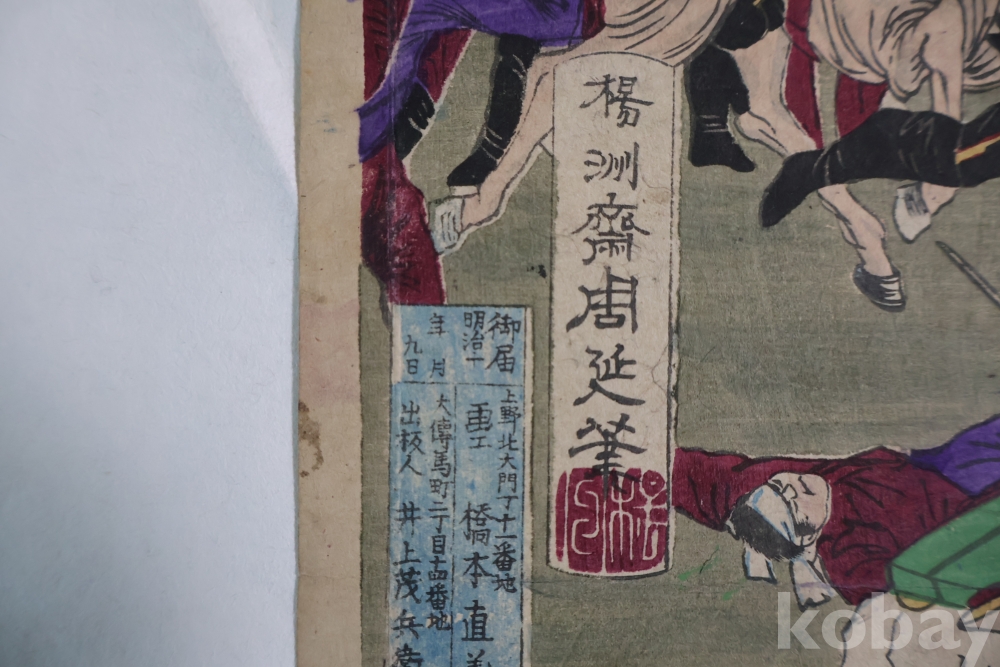 楊洲齋周延筆
御届
明治一
年 月
九日
上野北大門丁十一番地
画工 橋本直義
大傳馬町二丁目十四番地
出板人 井上茂兵衛
kobay